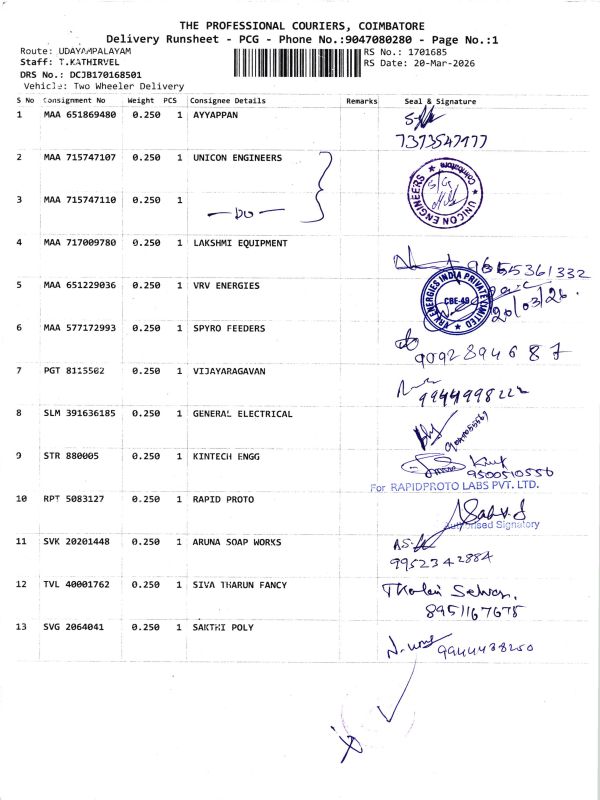 THE PROFESSIONAL COURIERS, COIMBATORE
Delivery Runsheet - PCG - Phone No.:9047080280 - Page No.:1
Route: UDAYAMPALAYAM
RS No.: 1701685
Staff: T.KATHIRVEL
RS Date: 20-Mar-2026
DRS No.: DCJB170168501
Vehicle: Two Wheeler Delivery
S No Consignment No Weight PCS Consignee Details Remarks Seal & Signature
1 MAA 651869480 0.250 1 AYYAPPAN
7373547177
2 MAA 715747107 0.250 1 UNICON ENGINEERS
UNICON ENGINEERS ★ Coimbatore ★
3 MAA 715747110 0.250 1 —DO—
4 MAA 717009780 0.250 1 LAKSHMI EQUIPMENT
9655361332
5 MAA 651229036 0.250 1 VRV ENERGIES
ENERGIES INDIA PRIVATE LIMITED
CBE-49
20/03/26.
6 MAA 577172993 0.250 1 SPYRO FEEDERS
9092894687
7 PGT 8115502 0.250 1 VIJAYARAGAVAN
8 SLM 391636185 0.250 1 GENERAL ELECTRICAL
9 STR 880005 0.250 1 KINTECH ENGG
9500510556
For RAPIDPROTO LABS PVT. LTD.
10 RPT 5083127 0.250 1 RAPID PROTO
Authorised Signatory
11 SVK 20201448 0.250 1 ARUNA SOAP WORKS
9952342884
12 TVL 40001762 0.250 1 SIVA THARUN FANCY
8951167675
13 SVG 2064041 0.250 1 SAKTHI POLY
9944438250